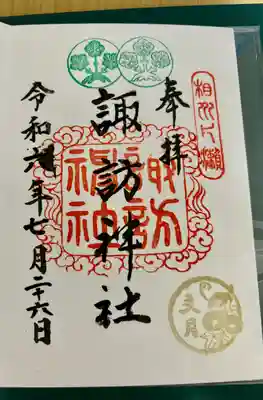 相州片瀬
奉拝
諏訪神社
諏訪
神社
令和六年七月二十六日
文月